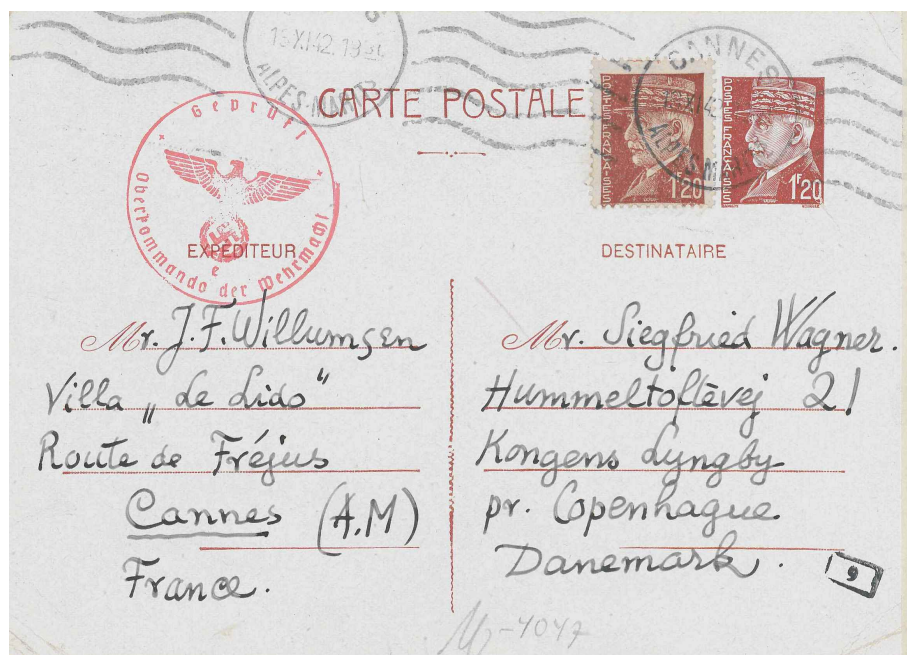 CANNES
13 XI 42. 18
ALPES-MARIT
CARTE POSTALE
POSTES FRANÇAISES
1F20
POSTES FRANÇAISES
1F20
Geprüft
Oberkommando der Wehrmacht
e
EXPÉDITEUR
DESTINATAIRE
Mr. J.F. Willumsen
Villa „Le Lido“
Route de Fréjus
Cannes (A.M)
France.
Mr. Siegfried Wagner.
Hummeltoftevej 21
Kongens Lyngby
pr. Copenhague
Danemark.
9